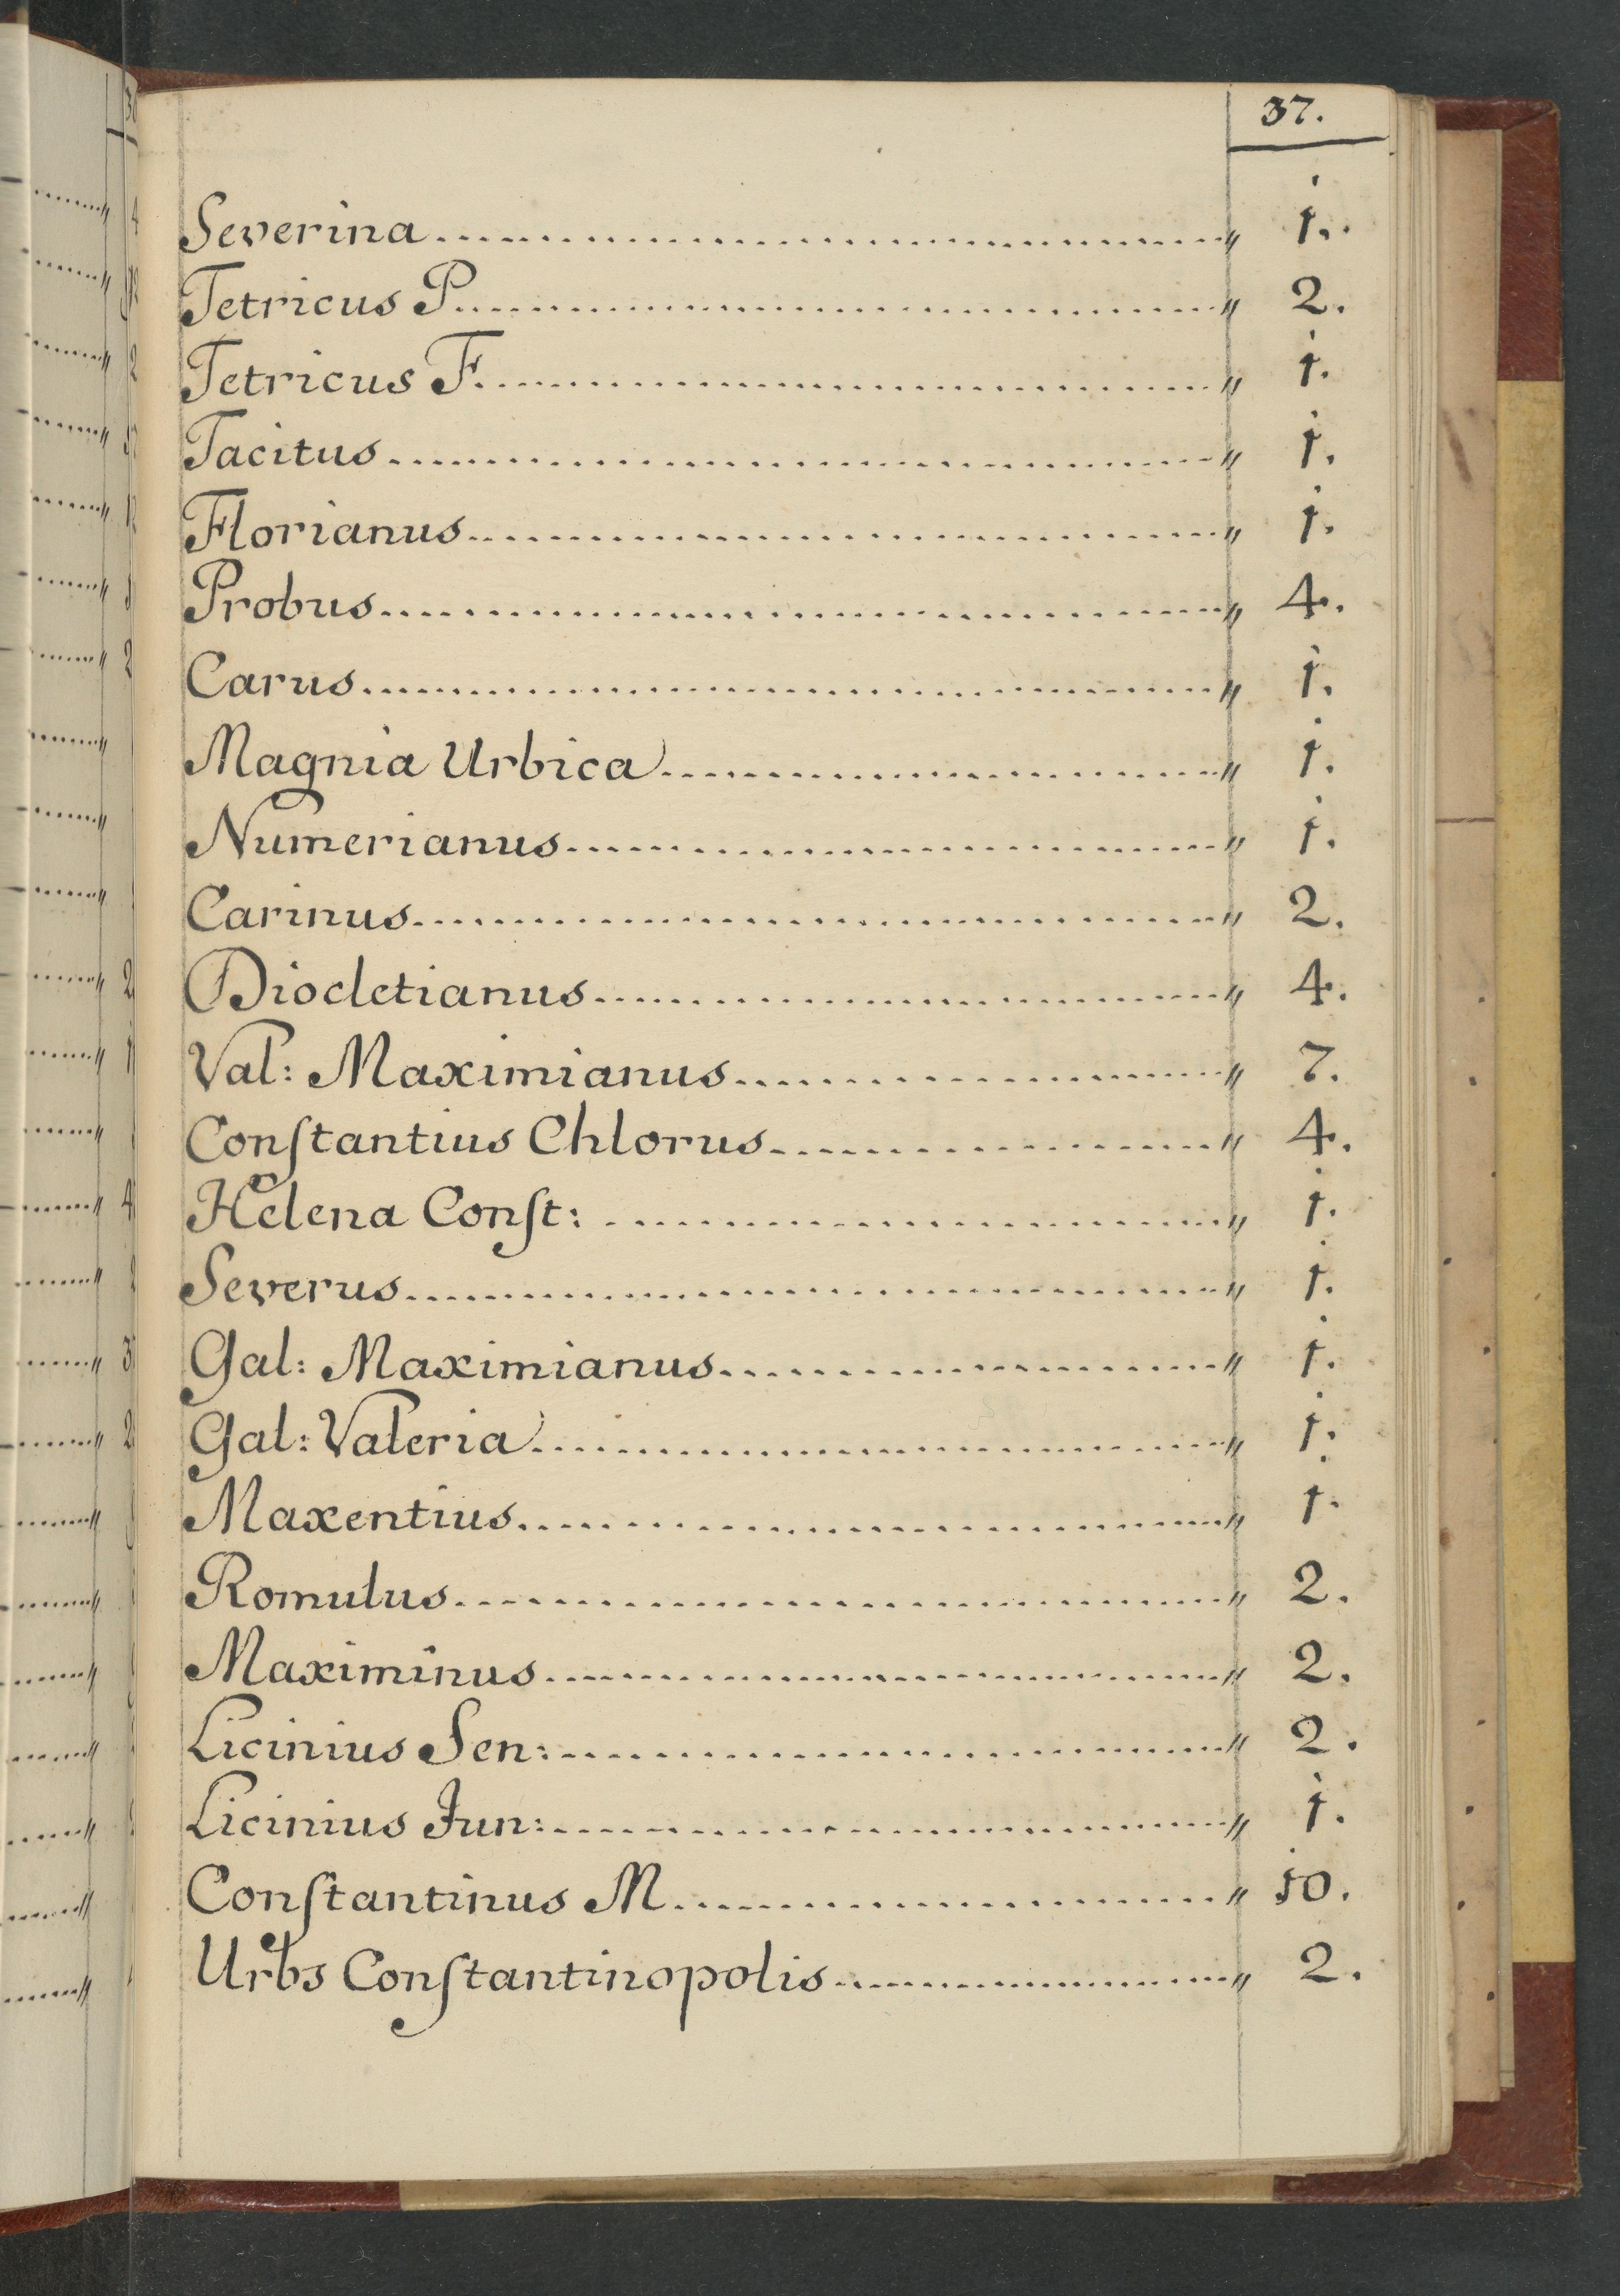 37.
Severina........................................" 1.
Tetricus P........................................" 2.
Tetricus F........................................" 1.
Tacitus........................................" 1.
Florianus........................................" 1.
Probus........................................" 4.
Carus........................................" 1.
Magnia Urbica........................................" 1.
Numerianus........................................" 1.
Carinus........................................" 2.
Diocletianus........................................" 4.
Val: Maximianus........................................" 7.
Conſtantius Chlorus........................................" 4.
Helena Conſt: ........................................" 1.
Severus........................................" 1.
Gal: Maximianus........................................" 1.
Gal: Valeria........................................" 1.
Maxentius........................................" 1.
Romulus........................................" 2.
Maximinus........................................" 2.
Licinius Sen:........................................" 2.
Licinius Jun:........................................" 1.
Conſtantinus M........................................" 10.
Urbs Conſtantinopolis........................................" 2.